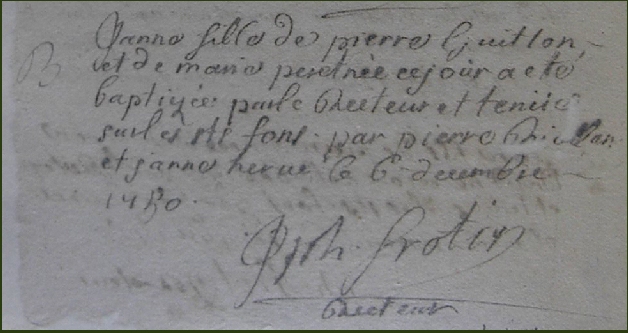 B
Janne fille de pierre Guillon,
et de marie perdrée ce jour a eté
baptizée par le Recteur et tenüe
sur les sts fons par pierre
et janne nerue le 6e decembre
1750.
Jph. Grotin
Recteur